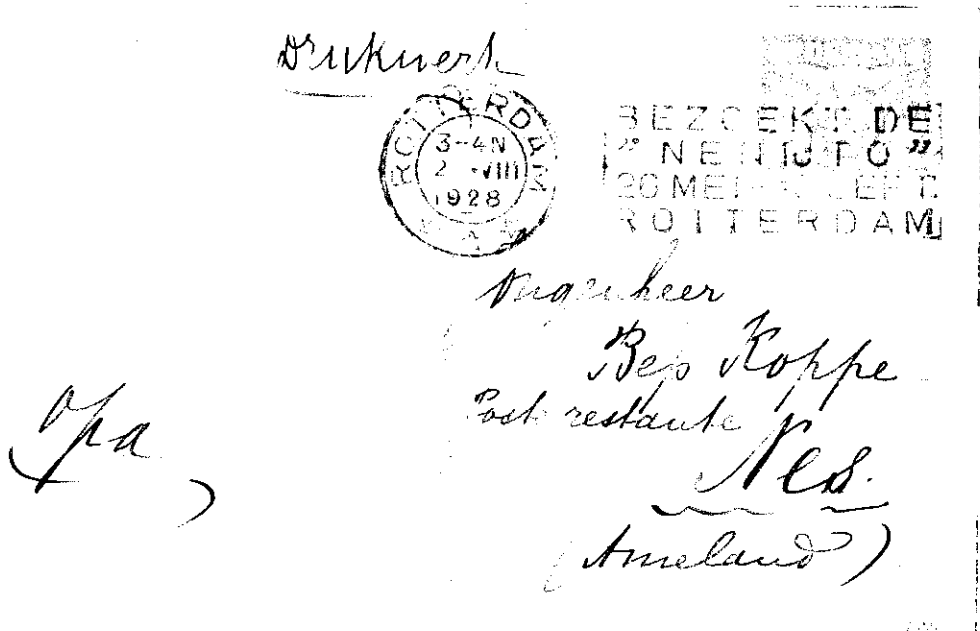 Drukwerk
ROTTERDAM
3-4N
2 VIII
1928
BEZOEKT DE
"NENIJTO"
20 MEI SEPT.
ROTTERDAM
heer
Koppe
Poste restante
Nes.
(Ameland)
Opa